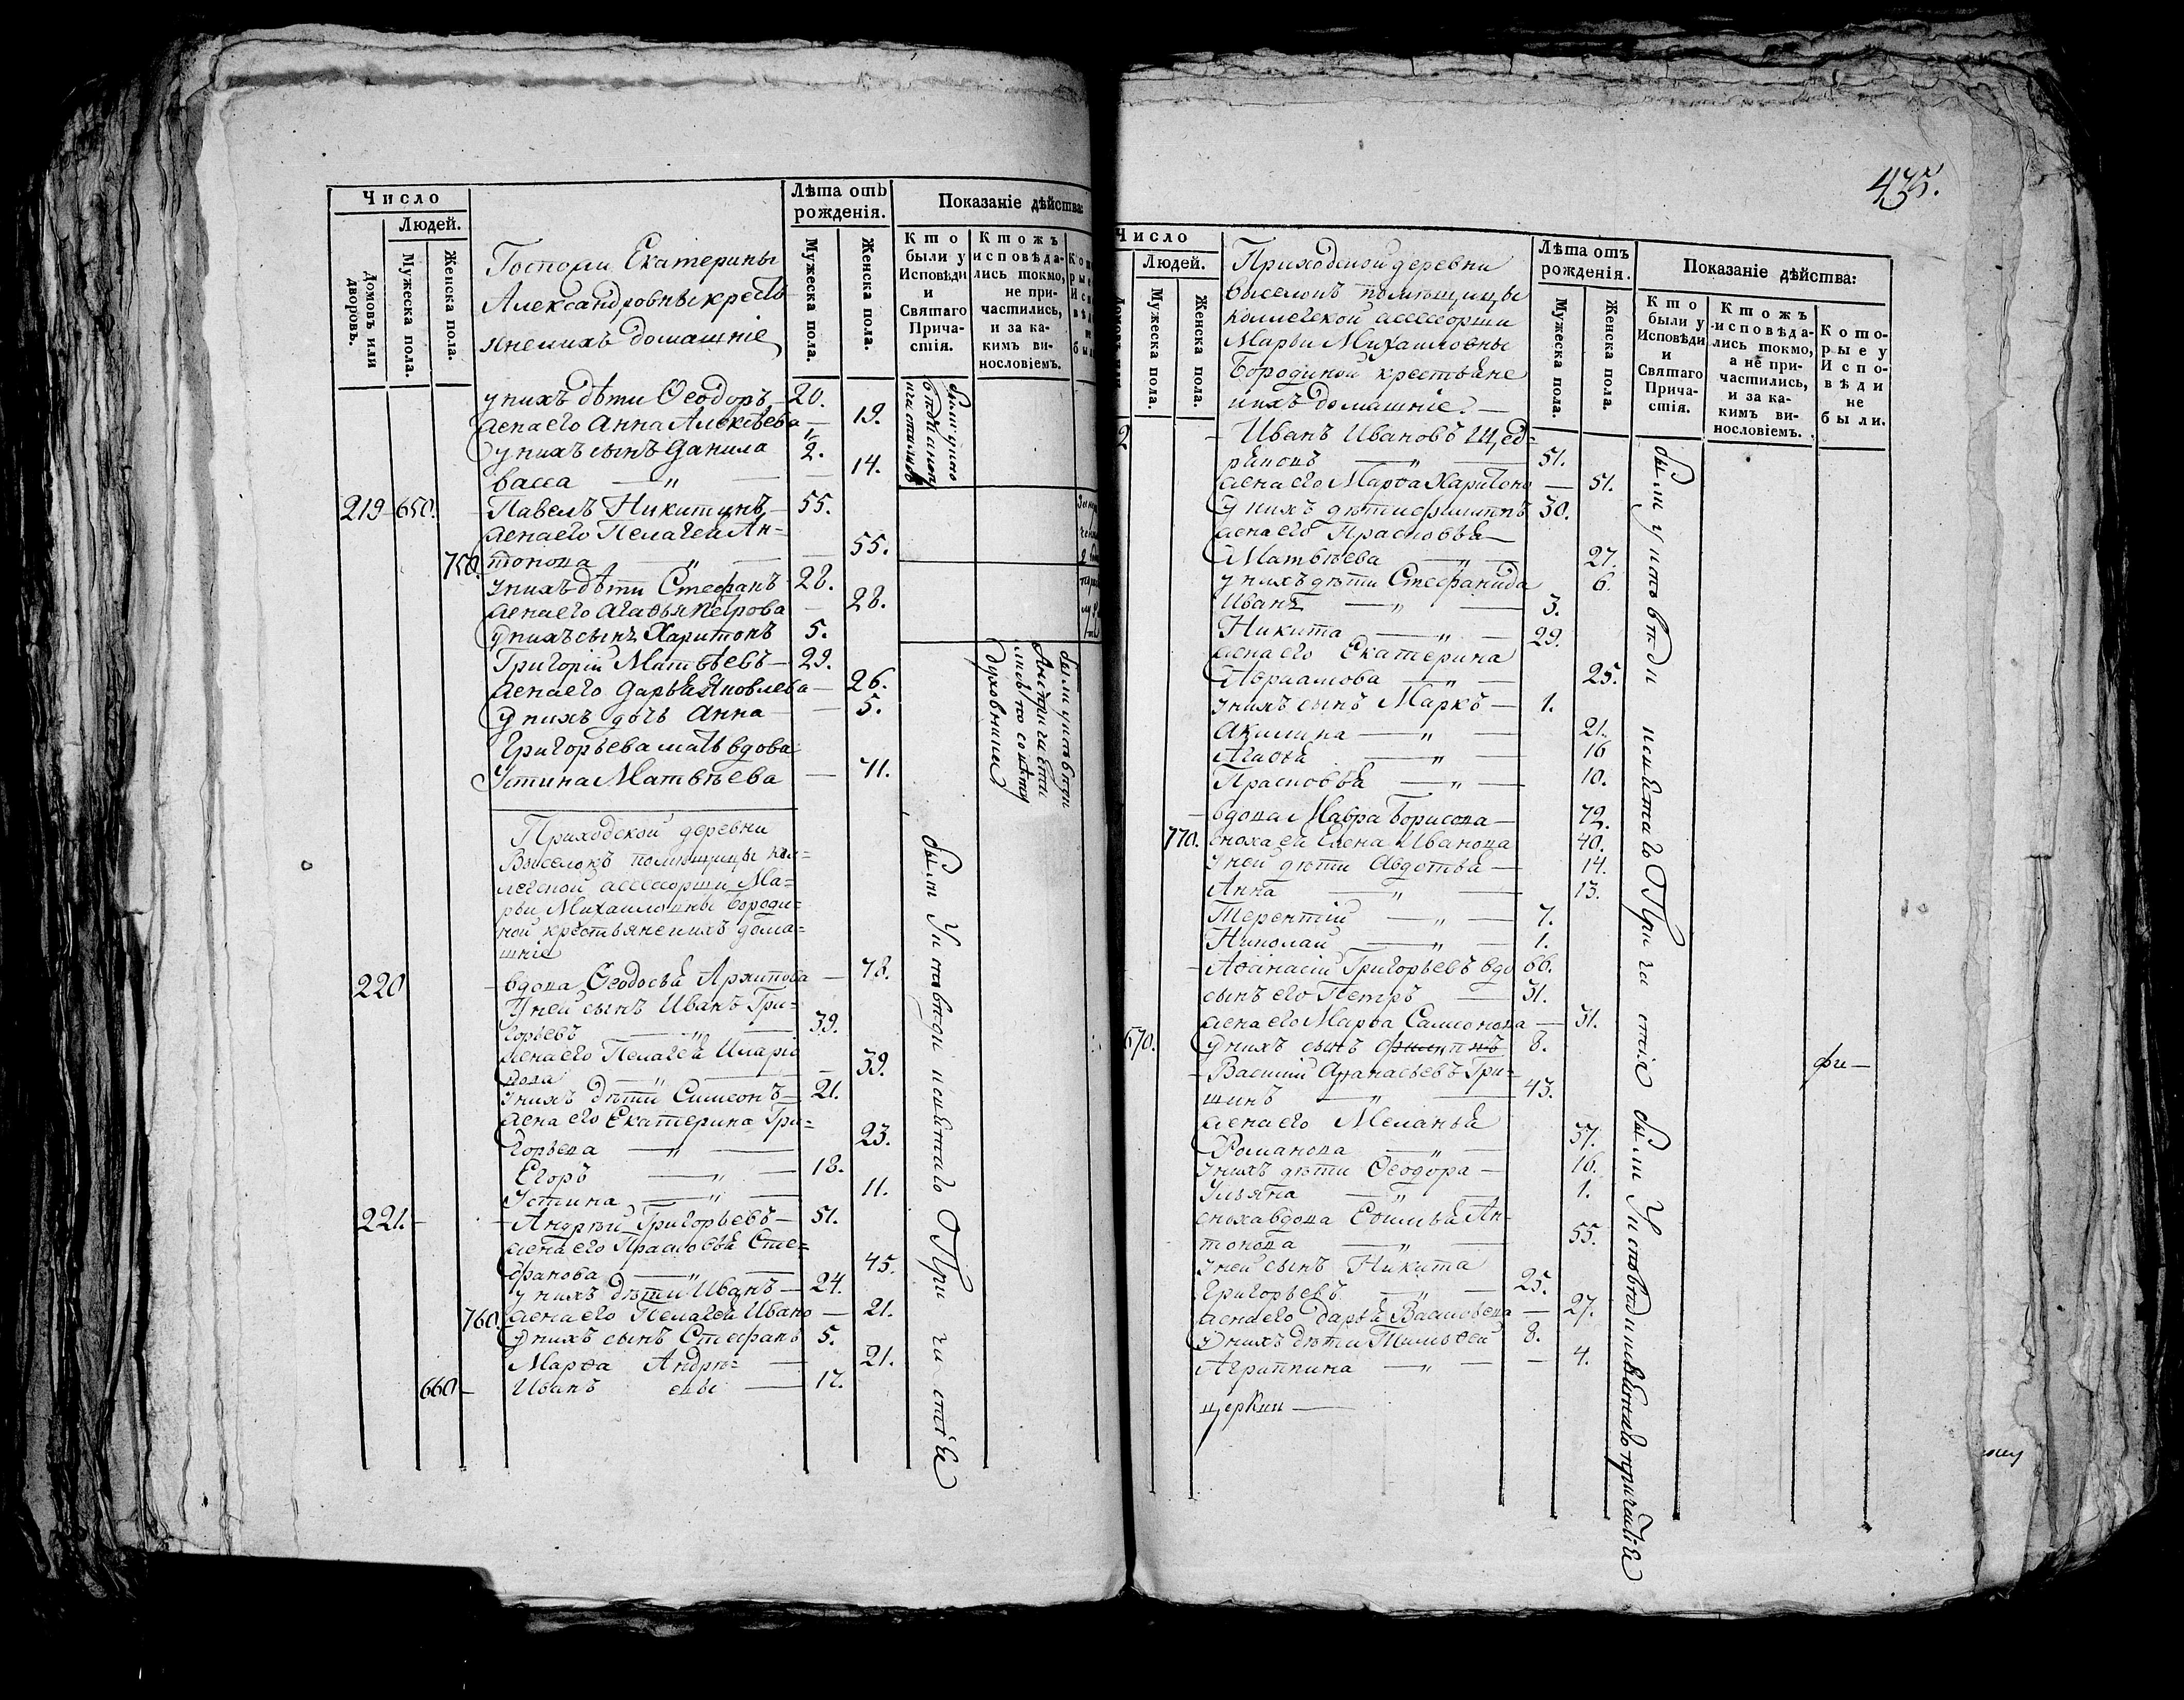 435.
Число
Людей.
Домовъ или дворовъ.
Мужеска пола.
Женска пола.
Лѣта отъ рожденія.
Мужеска пола.
Женска пола.
Показаніе дѣйства:
Кто были у Исповѣди и Святаго Причастія.
Ктожъ исповѣдались токмо, не причастились, и за какимъ винословіемъ.
Госпожи Екатерины
Александровны кресть
яне ихъ домашніе
у нихъ дѣти Ѳеодоръ — 20.
жена его Анна Алексѣева — 19.
у нихъ сынъ Данила 2.
васса — „ — 14.
219 650. Павелъ Никитинъ — 55.
жена его Пелагея Ан=
750. тонова — „ — 55.
у нихъ дѣти Стефанъ 28.
жена его Агафья Петрова — 28.
у нихъ сынъ Харитонъ 5.
Григорій Матвѣевъ — 29.
жена его Дарья Яковлева — 26.
у нихъ дочь Анна — 5.
Григорьева мать вдова
Устина Матвѣева — 71.
Приходской деревни
Выселокъ помѣщицы кол=
лежской ассессорши Ма=
рьи Михаиловны Бороди=
ной крестьяне ихъ дома=
шніе
220 вдова Ѳеодосья Архипова — 78.
У ней сынъ Иванъ Гри=
горьевъ — „ — 39.
жена его Пелагея Иларіо
нова — „ — 39.
у нихъ дѣти Симеонъ — 21.
жена его Екатерина Гри=
горьева — „ — 23.
Егоръ — „ — 18.
Устина — „ — 11.
221. Андрей Григорьевъ — 51.
жена его Прасковья Сте=
фанова — „ — 45.
у нихъ дѣти Иванъ — 24.
760. жена его Пелагея Ивано — 21.
у нихъ сынъ Стефанъ 5.
Марѳа Андре= — 21.
660 Иванъ евы — 17.
были у исповѣди и святаго Причастія
Число
Людей.
Мужеска пола.
Женска пола.
Лѣта отъ рожденія.
Мужеска пола.
Женска пола.
Показаніе дѣйства:
Кто были у Исповѣди и Святаго Причастія.
Ктожъ исповѣдались токмо, а не причастились, и за какимъ винословіемъ.
Которые у Исповѣди не были.
Приходской деревни
выселокъ помѣщицы
коллежской ассессорши
Марьи Михаиловны
Бородиной крестьяне
ихъ домашніе. —
2 Иванъ Ивановъ Щед=
ринъ — „ — 51.
жена его Марѳа Харитоно — 51.
у нихъ дѣти Филиппъ 30.
жена его Прасковья —
Матвѣева — „ — 27.
у нихъ дѣти Стефанида 6.
Иванъ — „ — 3.
Никита — „ — 29.
жена его Екатерина
Авраамова — „ — 25.
у нихъ сынъ Маркъ — 1.
Акилина — „ — 21.
Агафья — „ — 16
Прасковья — „ — 10.
вдова Мавра Борисова — 72.
770. сноха ей Елена Иванова 40.
У ней дѣти Авдотья — 14.
Анна — „ — 13.
Терентій — „ — 7.
Николай — „ — 1.
Аѳанасій Григорьевъ вдо 66.
сынъ его Петръ — 31.
жена его Марѳа Самсонова — 31.
670. у нихъ сынъ Филиппъ 8.
Василій Аѳанасьевъ Гри=
шинъ — „ — 43.
жена его Меланья
Романова — „ — 37.
у нихъ дѣти Ѳеодора — 16.
Ульяна — „ — 1.
сноха вдова Еѳимья Ан=
тонова — „ — 55.
у ней сынъ Никита
Григорьевъ — „ — 25.
жена его Дарья Васильева — 27.
у нихъ дѣти Тимоѳей 8.
Агриппина — „ — 4.
церкви —
были у исповѣди и святаго Причастія
были у исповѣди и святаго причастія